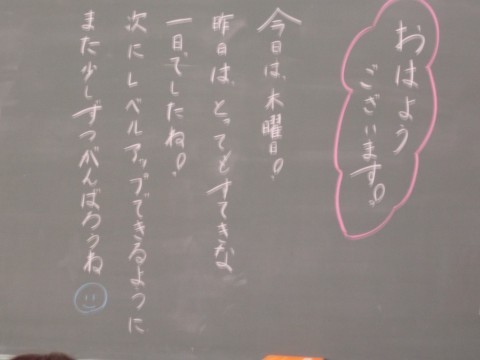 おはよう
ございます!
今日は、木曜日!
昨日は、とってもすてきな
一日でしたね!
次にレベルアップできるように
また少しずつがんばろうね